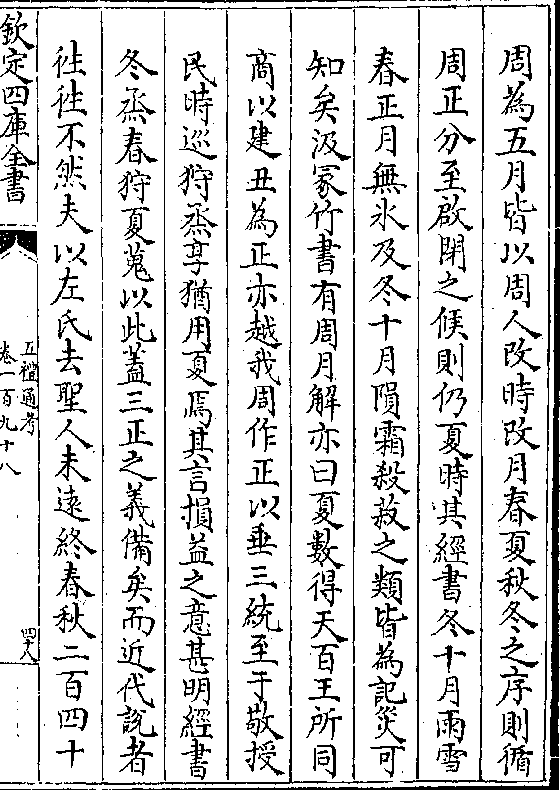 周為五月皆以周人改時改月春夏秋冬之序則循
周正分至啟閉之候則仍夏時其經書冬十月雨雪
春正月無氷及冬十月隕霜殺菽之類皆為記災可
知矣汲冢竹書有周月解亦曰夏數得天百王所同
商以建丑為正亦越我周作正以垂三統至于敬授
民時巡狩烝享猶用夏焉其言損益之意甚明經書
冬烝春狩夏蒐以此蓋三正之義備矣而近代說者
徃徃不然夫以左氏去聖人未逺終春秋二百四十
欽定四庫全書
五禮通考
卷一百九十八
四十八